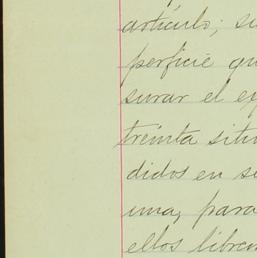 artículo; su
perficie qu
surar el ex
treinta situ
didos en s
una, para
ellos librem